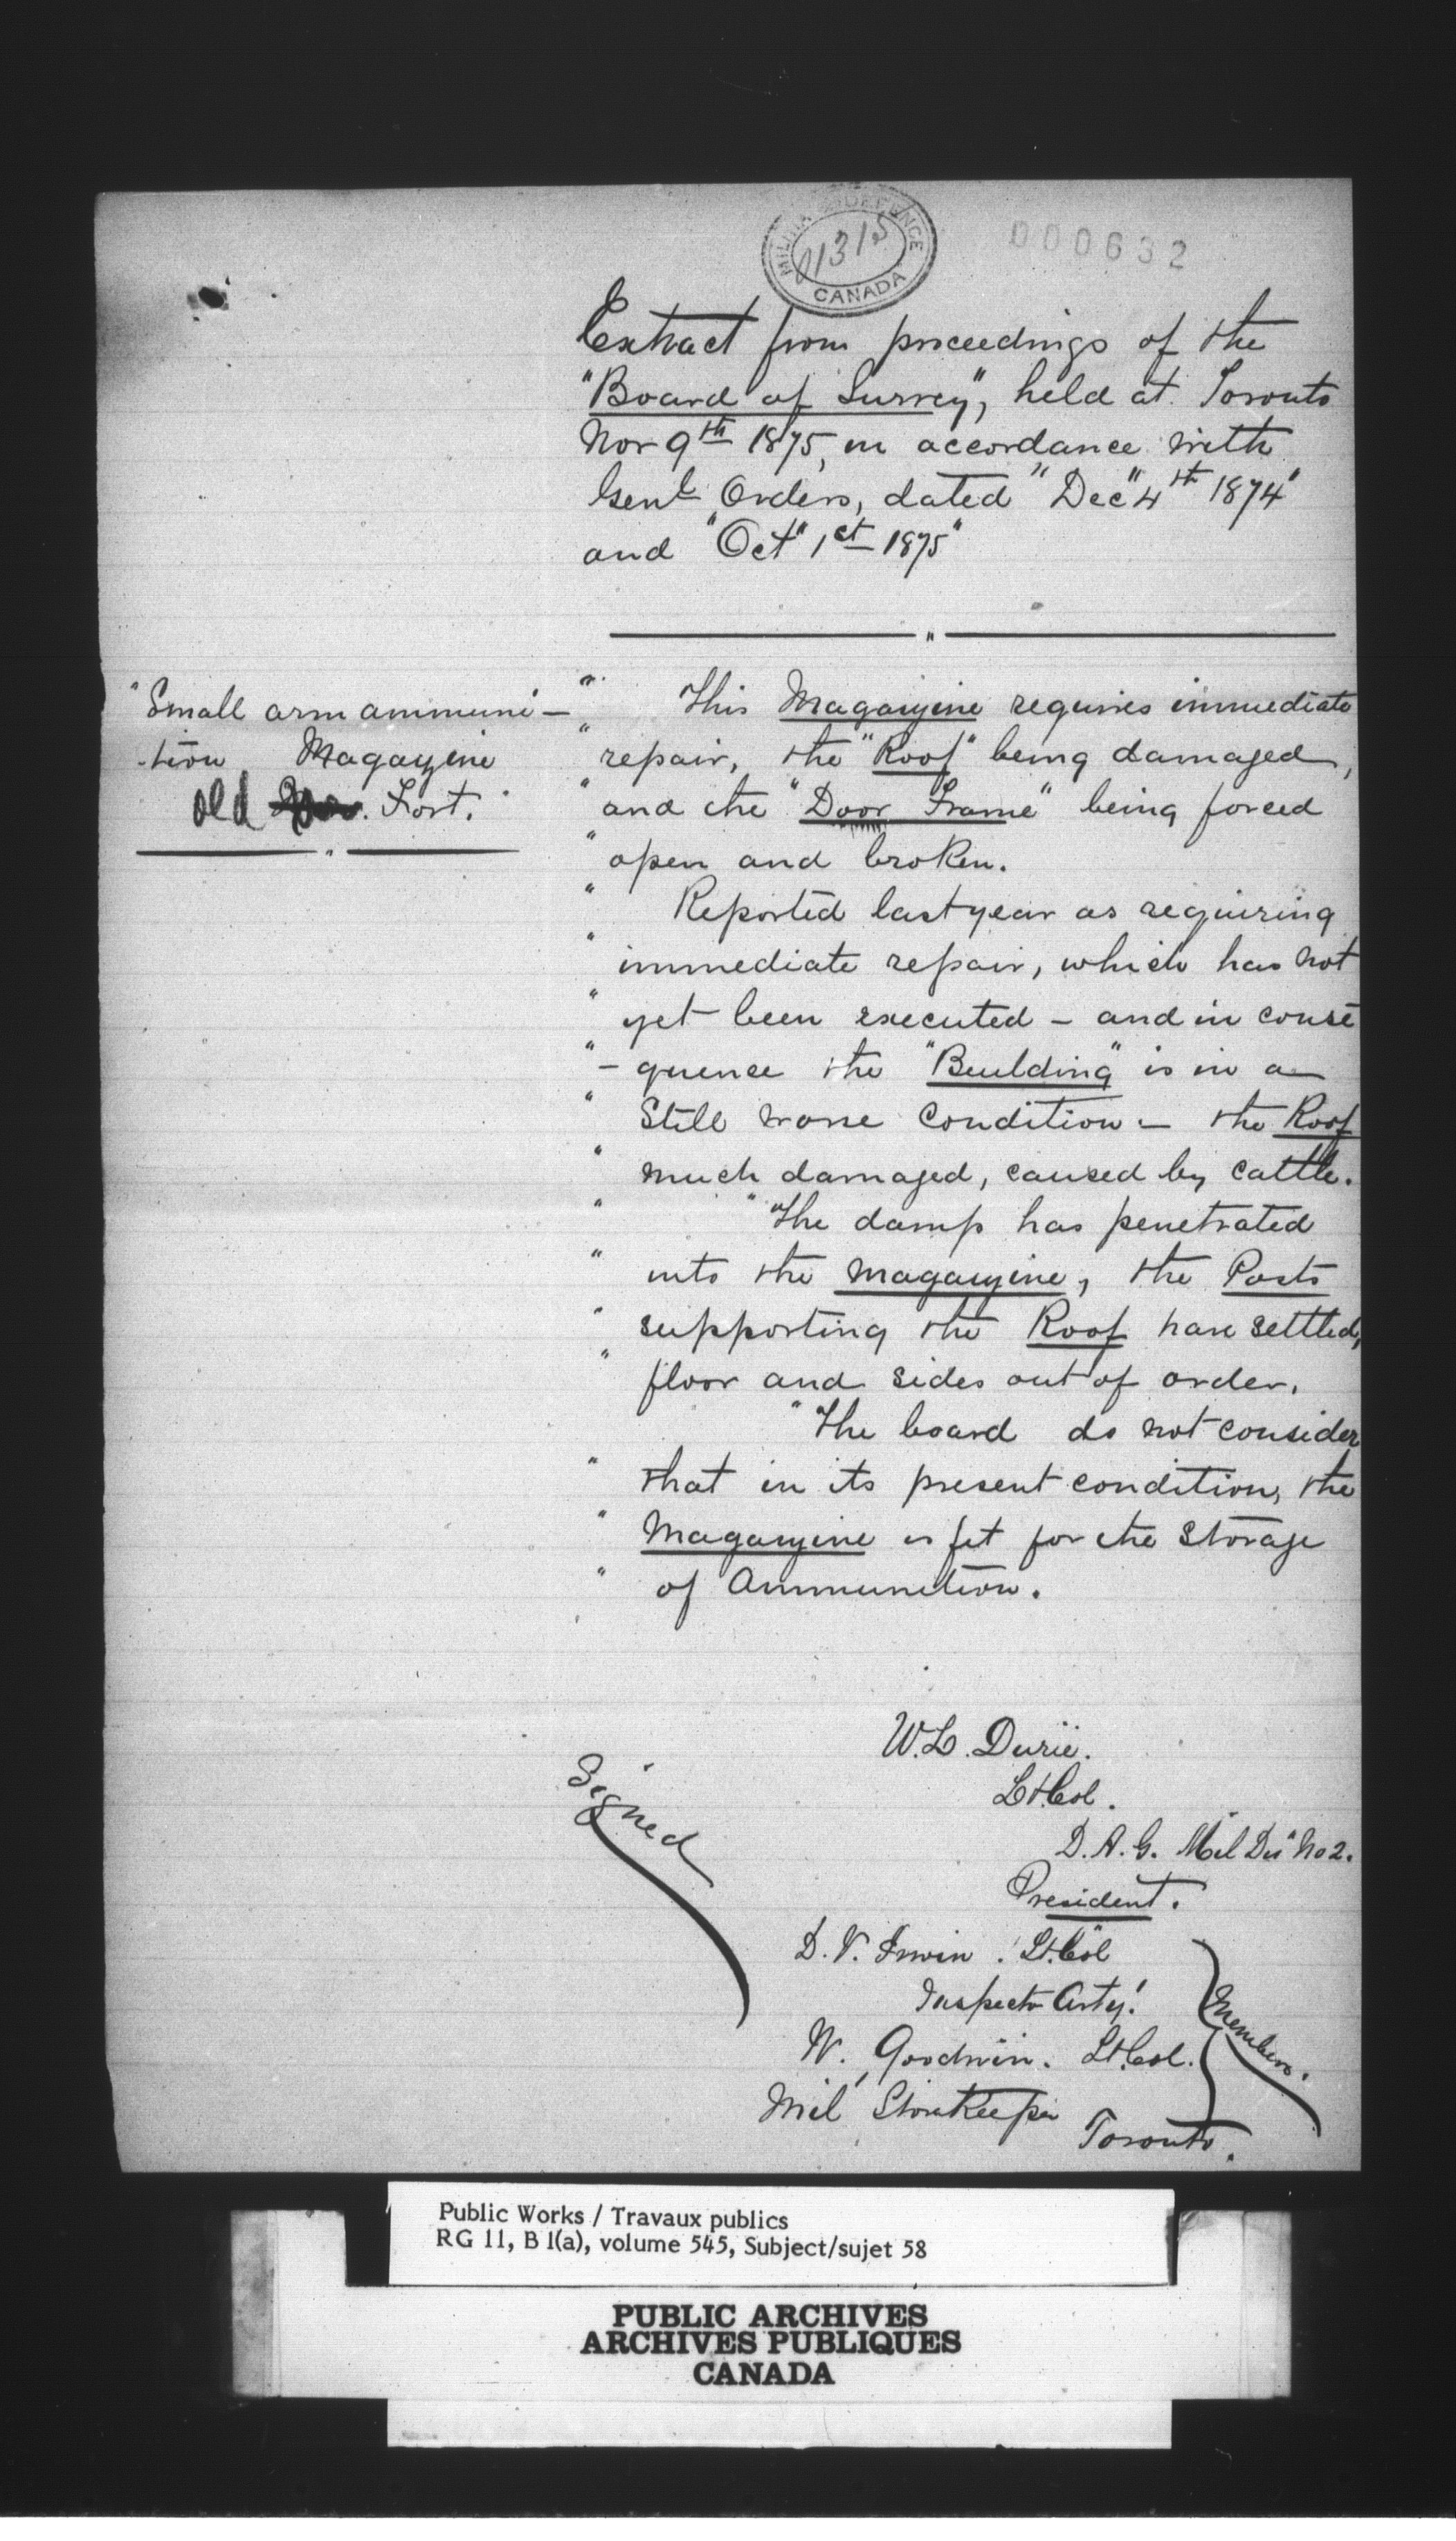 MILITIA & DEFENCE
01315
CANADA
000632
Extract from proceedings of the
"Board of Survey", held at Toronto
Nov 9th 1875, in accordance with
Genl Orders, dated "Dec" 4th 1874"
and "Oct" 1st 1875"
"Small arm ammuni-
-tion Magazine
Old Fort."
" This Magazine requires immediate
" repair, the "Roof" being damaged,
" and the "Door Frame" being forced
" open and broken.
" Reported last year as requiring
" immediate repair, which has not
" yet been executed - and in conse
" - quence the "Building" is in a
" Still worse condition - the Roof
" much damaged, caused by cattle.
" "The damp has penetrated
" into the magazine, the Posts
" supporting the Roof have settled,
" floor and sides out of order.
"The board do not consider
" that in its present condition, the
" Magazine is fit for the Storage
" of Ammunition.
Signed
W.L. Durie.
Lt. Col.
D.A.G. Mil Dis" No 2.
President.
D.T. Irwin. Lt. Col
Inspectr Arty.
W. Goodwin. Lt. Col.
Mil Storekeeper
Toronto.
Members.
Public Works / Travaux publics
RG 11, B 1(a), volume 545, Subject/sujet 58
PUBLIC ARCHIVES
ARCHIVES PUBLIQUES
CANADA